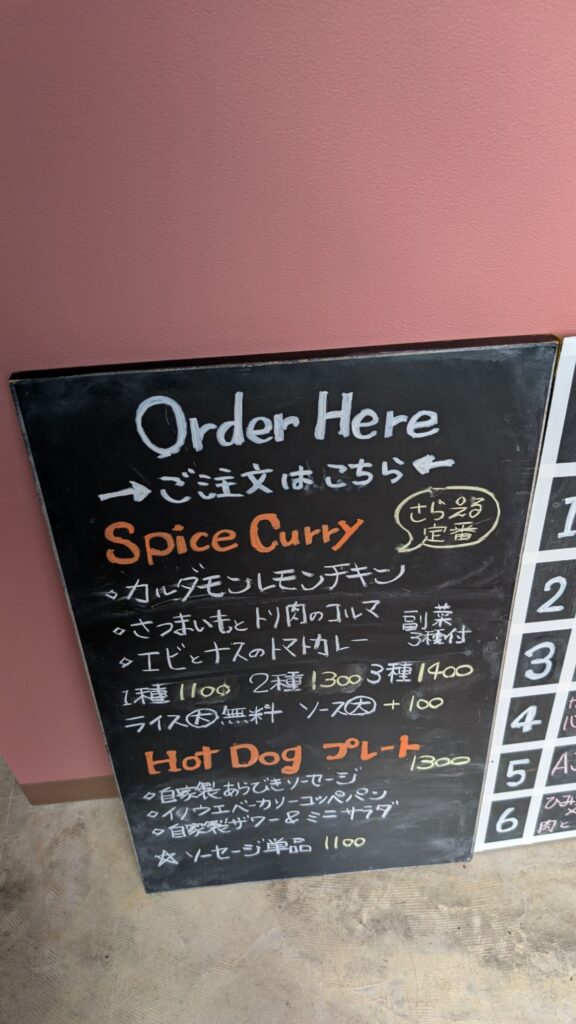 Order Here
→ご注文はこちら←
Spice Curry
さらえる
定番
◇カルダモンレモンチキン
◇さつまいもとトリ肉のコルマ
◇エビとナスのトマトカレー
副菜
3種付
1種1100 2種1300 3種1400
ライス大無料 ソース大+100
Hot Dog プレート
1300
◇自家製あらびきソーセージ
◇イノウエベーカリーコッペパン
◇自家製ザワー&ミニサラダ
☆ソーセージ単品 1100
1
2
3
4
5
6
肉と